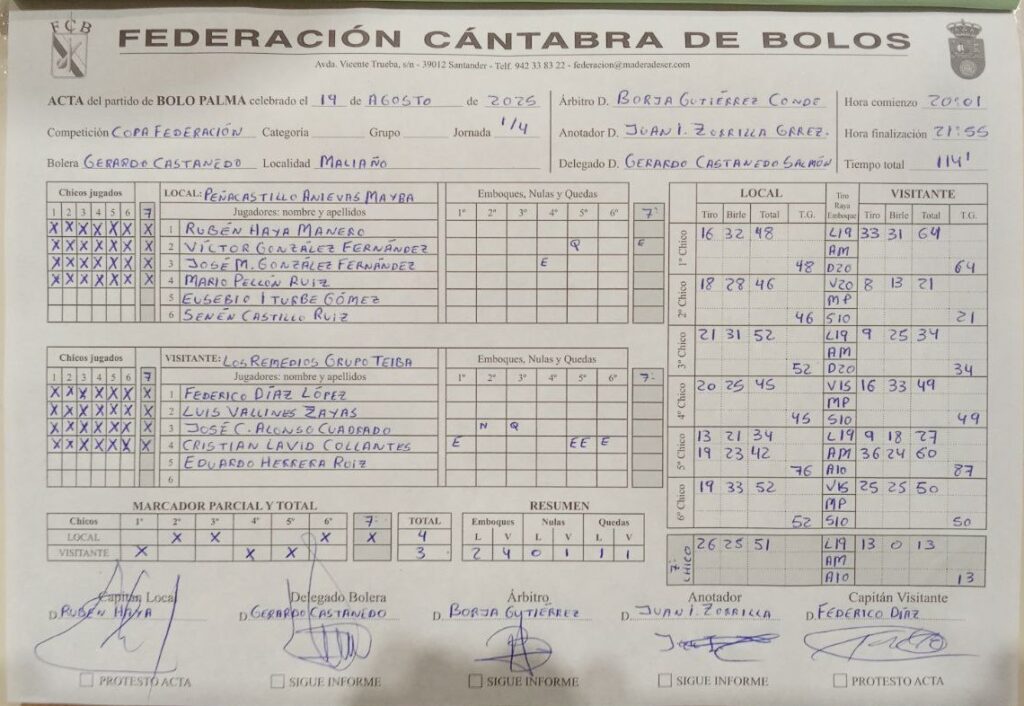 FCB
FEDERACIÓN CÁNTABRA DE BOLOS
Avda. Vicente Trueba, s/n - 39012 Santander - Telf. 942 33 83 22 - federacion@maderadeser.com
ACTA del partido de BOLO PALMA celebrado el 19 de AGOSTO de 2025
Competición COPA FEDERACIÓN Categoría Grupo Jornada 1/4
Bolera GERARDO CASTANEDO Localidad MALIAÑO
Árbitro D. BORJA GUTIÉRREZ CONDE
Anotador D. JUAN I. ZORRILLA GRREZ.
Delegado D. GERARDO CASTANEDO SALMÓN
Hora comienzo 20:01
Hora finalización 21:55
Tiempo total 114'
Chicos jugados LOCAL: PEÑACASTILLO ANIEVAS MAYBA Emboques, Nulas y Quedas
1 2 3 4 5 6 7 Jugadores: nombre y apellidos 1º 2º 3º 4º 5º 6º 7º
X X X X X X X 1 RUBÉN HAYA MANERO
X X X X X X X 2 VÍCTOR GONZÁLEZ FERNÁNDEZ Q E
X X X X X X X 3 JOSÉ M. GONZÁLEZ FERNÁNDEZ E
X X X X X X X 4 MARIO PELLÓN RUIZ
5 EUSEBIO ITURBE GÓMEZ
6 SENÉN CASTILLO RUIZ
Chicos jugados VISITANTE: LOS REMEDIOS GRUPO TEIBA Emboques, Nulas y Quedas
1 2 3 4 5 6 7 Jugadores: nombre y apellidos 1º 2º 3º 4º 5º 6º 7º
X X X X X X X 1 FEDERICO DÍAZ LÓPEZ
X X X X X X X 2 LUIS VALLINES ZAYAS
X X X X X X X 3 JOSÉ C. ALONSO CUADRADO N Q
X X X X X X X 4 CRISTIAN LAVID COLLANTES E EE E
5 EDUARDO HERRERA RUIZ
6
MARCADOR PARCIAL Y TOTAL
Chicos 1º 2º 3º 4º 5º 6º 7º TOTAL
LOCAL X X X X 4
VISITANTE X X X 3
RESUMEN
Emboques Nulas Quedas
L V L V L V
2 4 0 1 1 1
LOCAL Tiro Raya Emboque VISITANTE
Tiro Birle Total T.G. Tiro Birle Total T.G.
1º Chico 16 32 48 L19 33 31 64
AM
48 D20 64
2º Chico 18 28 46 V20 8 13 21
MP
46 S10 21
3º Chico 21 31 52 L19 9 25 34
AM
52 D20 34
4º Chico 20 25 45 V15 16 33 49
MP
45 S10 49
5º Chico 13 21 34 L19 9 18 27
19 23 42 AM 36 24 60
76 A10 87
6º Chico 19 33 52 V15 25 25 50
MP
52 S10 50
7º CHICO 26 25 51 L19 13 0 13
AM
A10 13
Capitán Local
D. RUBÉN HAYA
Delegado Bolera
D. GERARDO CASTANEDO
Árbitro
D. BORJA GUTIÉRREZ
Anotador
D. JUAN I. ZORRILLA
Capitán Visitante
D. FEDERICO DÍAZ
PROTESTO ACTA
SIGUE INFORME
SIGUE INFORME
SIGUE INFORME
PROTESTO ACTA